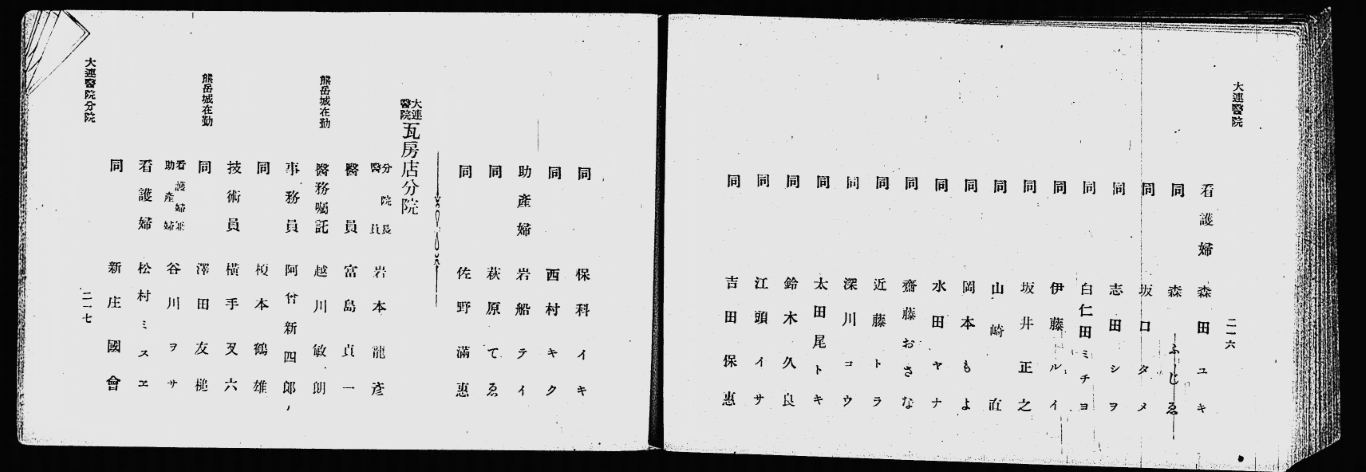 大連醫院
二一六
看護婦 森田ユキ
同 森ふじゑ
同 坂口タメ
同 志田シヲ
同 白仁田ミチヨ
同 伊藤ルイ
同 坂井正之
同 山崎直
同 岡本もよ
同 水田ヤナ
同 齋藤おさな
同 近藤トラ
同 深川コウ
同 太田尾トキ
同 鈴木久良
同 江頭イサ
同 吉田保惠
同 保科イキ
同 西村キク
助產婦 岩船テイ
同 萩原てゑ
同 佐野滿惠
大連醫院瓦房店分院
分院長醫員 岩本龍彥
醫員 富島貞一
熊岳城在勤 醫務囑託 越川敏朗
事務員 阿曾新四郎
同 榎本鶴雄
技術員 橫手叉六
熊岳城在勤 同 澤田友槌
看護婦兼助產婦 谷川ヲサ
看護婦 松村ミスヱ
同 新庄國會
大連醫院分院
二一七